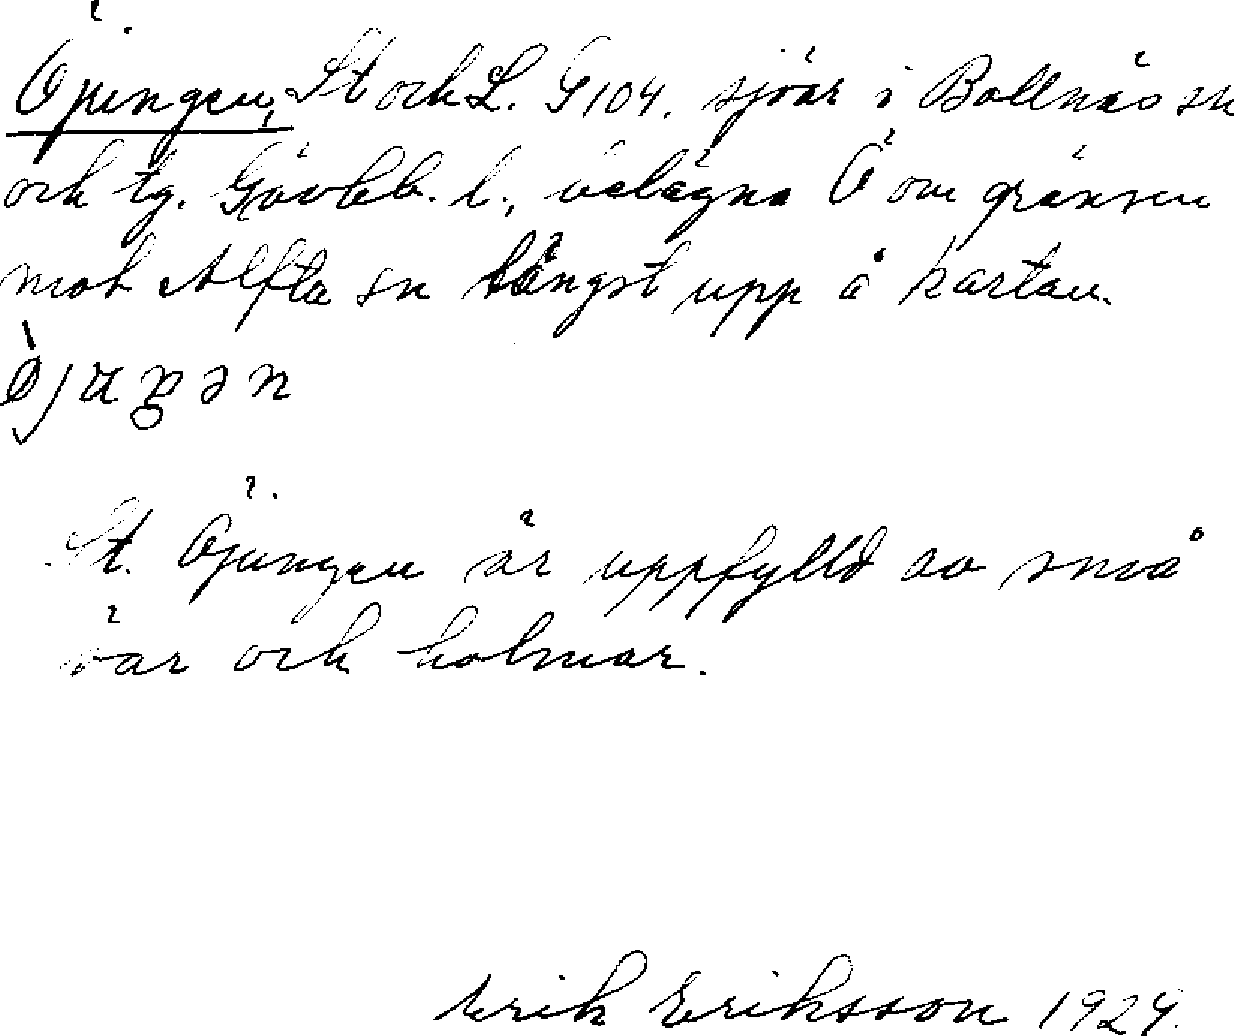 Öjungen, St och L. G 104. sjöar i Bollnäs sn
och tg. Gävleb. l., belägna Ö om gränsen
mot Alfta sn längst upp å kartan.
St. Öjungen är uppfylld av små
öar och holmar.
Erik Eriksson 1929.